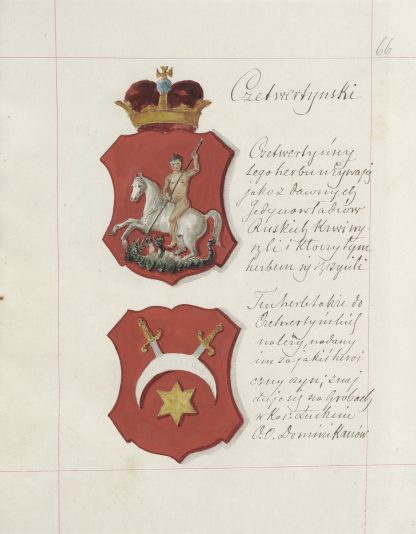 66
Czetwertynski
Czetwertyńscy
tego herbu używają
jako z dawnych
Jedynowładców
Ruskich krwi wy-
szli i którzy tym
herbem się szczycili
Ten herb także do
Czetwertyńskich
należy, nadany
im za jakiś heroi
czny czyn; znaj
duje się na Grobach
w Koś: Łuckim
O.O. Dominikanów